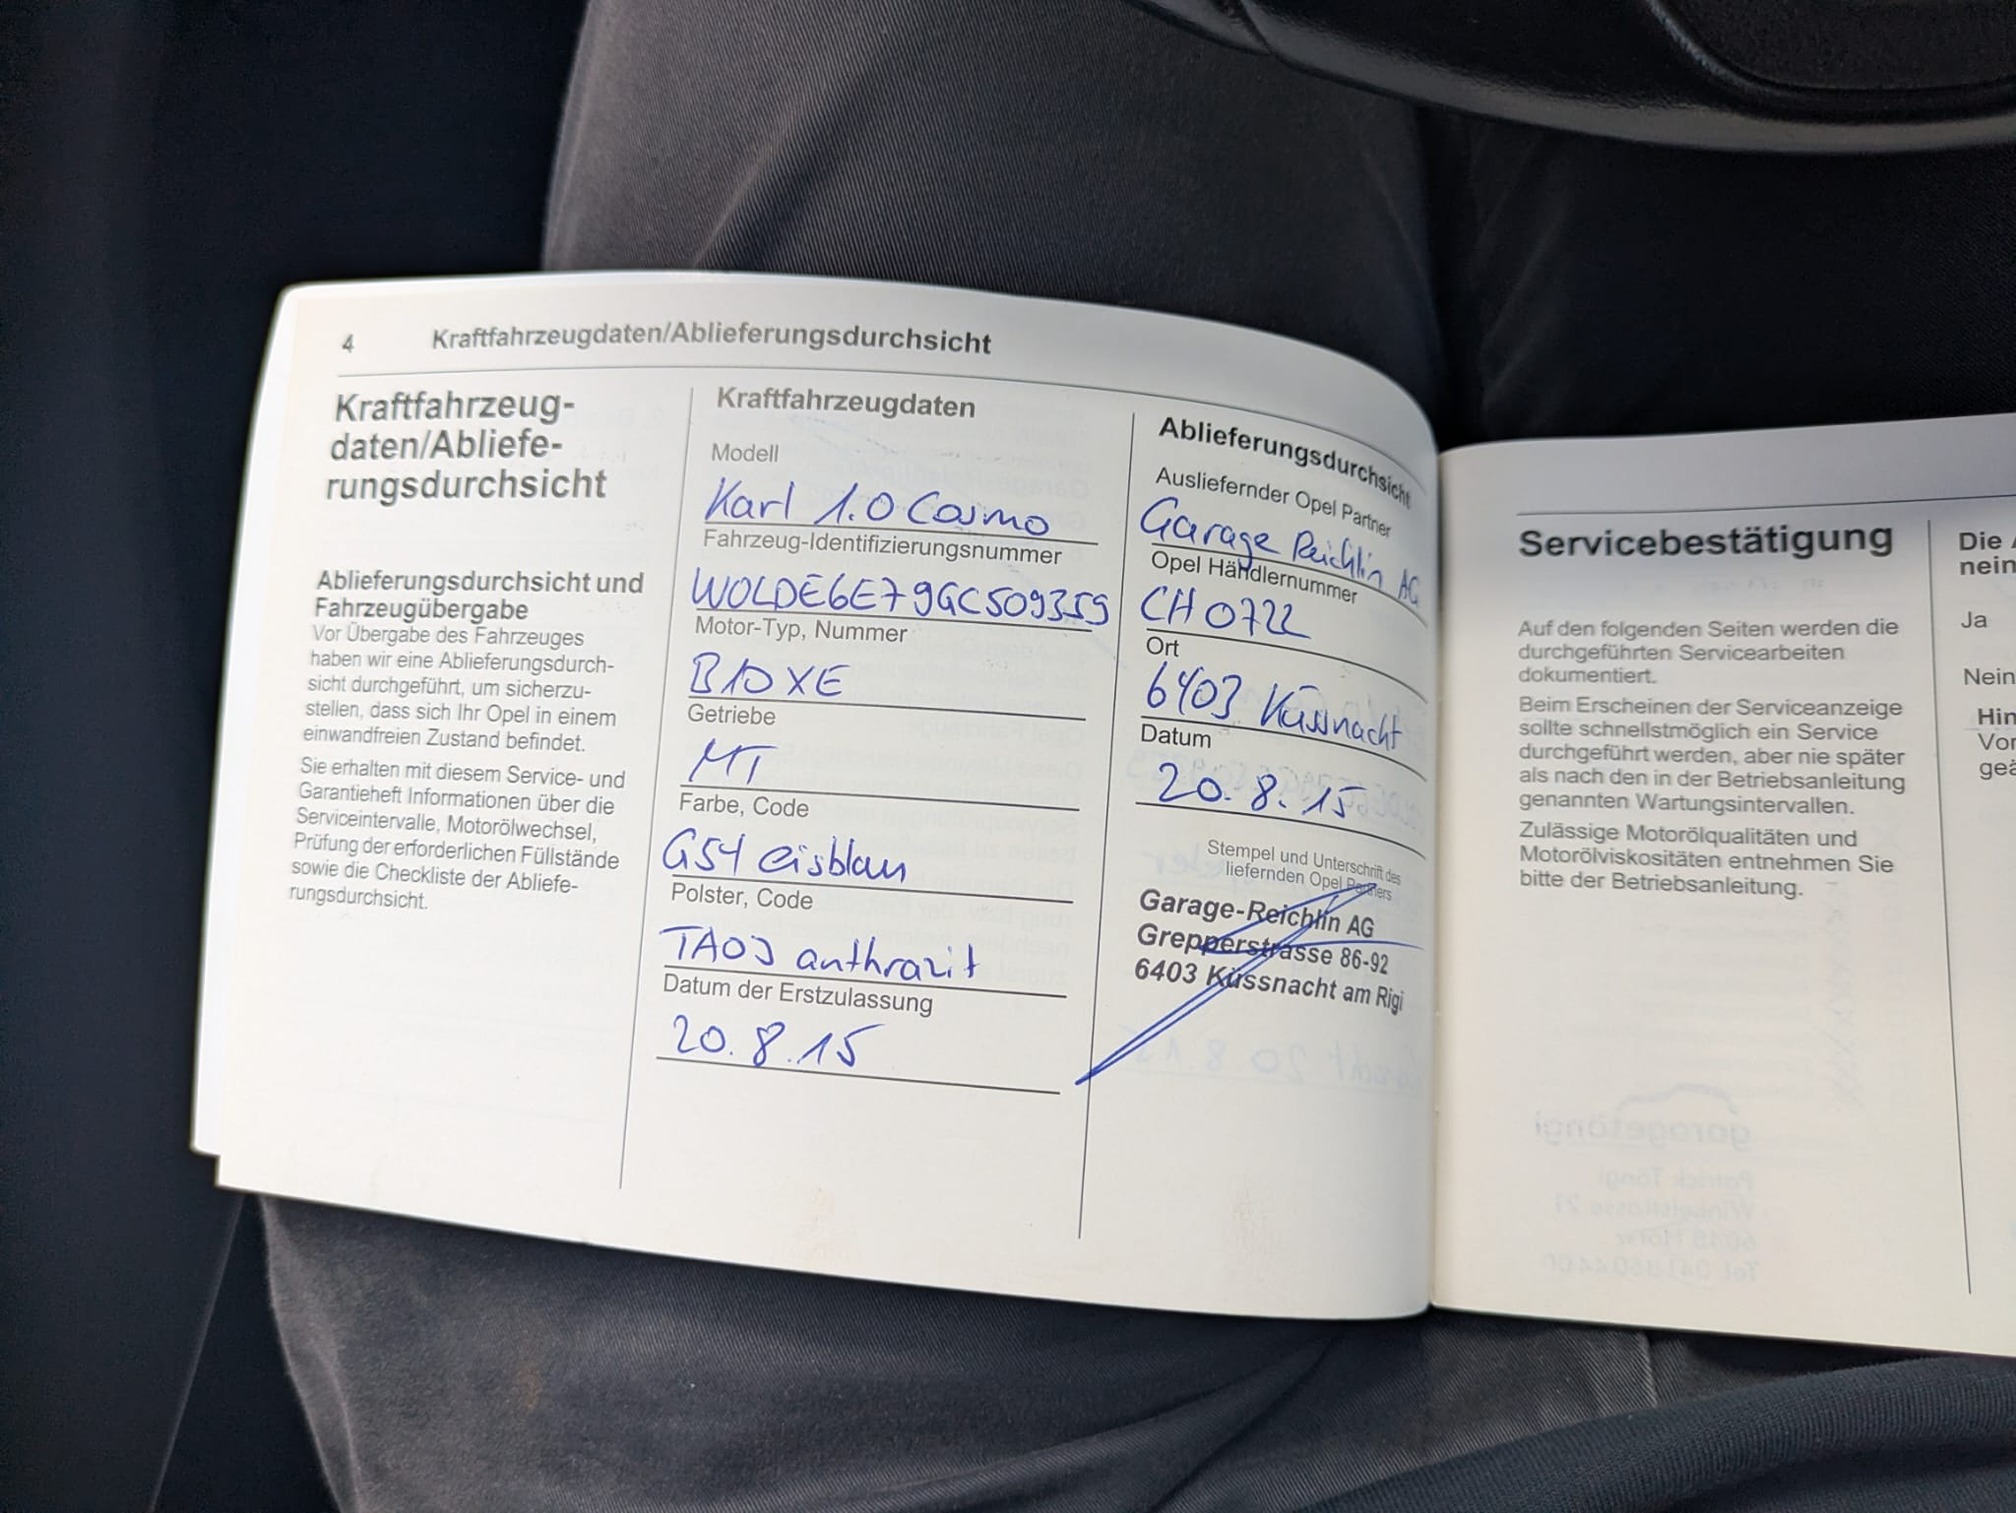 4 Kraftfahrzeugdaten/Ablieferungsdurchsicht
Kraftfahrzeug-
daten/Abliefe-
rungsdurchsicht
Ablieferungsdurchsicht und
Fahrzeugübergabe
Vor Übergabe des Fahrzeuges
haben wir eine Ablieferungsdurch-
sicht durchgeführt, um sicherzu-
stellen, dass sich Ihr Opel in einem
einwandfreien Zustand befindet.
Sie erhalten mit diesem Service- und
Garantieheft Informationen über die
Serviceintervalle, Motorölwechsel,
Prüfung der erforderlichen Füllstände
sowie die Checkliste der Abliefe-
rungsdurchsicht.
Kraftfahrzeugdaten
Modell
Karl 1.0 Cosmo
Fahrzeug-Identifizierungsnummer
W0LDE6E79GC509359
Motor-Typ, Nummer
B10XE
Getriebe
MT
Farbe, Code
G54 eisblau
Polster, Code
TA0J anthrazit
Datum der Erstzulassung
20.8.15
Ablieferungsdurchsicht
Ausliefernder Opel Partner
Garage Reichlin AG
Opel Händlernummer
CH 0722
Ort
6403 Küssnacht
Datum
20.8.15
Stempel und Unterschrift des
liefernden Opel Partners
Garage-Reichlin AG
Grepperstrasse 86-92
6403 Küssnacht am Rigi
Servicebestätigung
Auf den folgenden Seiten werden die
durchgeführten Servicearbeiten
dokumentiert.
Beim Erscheinen der Serviceanzeige
sollte schnellstmöglich ein Service
durchgeführt werden, aber nie später
als nach den in der Betriebsanleitung
genannten Wartungsintervallen.
Zulässige Motorölqualitäten und
Motorölviskositäten entnehmen Sie
bitte der Betriebsanleitung.
Die
nein
Ja
Nein
Hin
Vor
geä